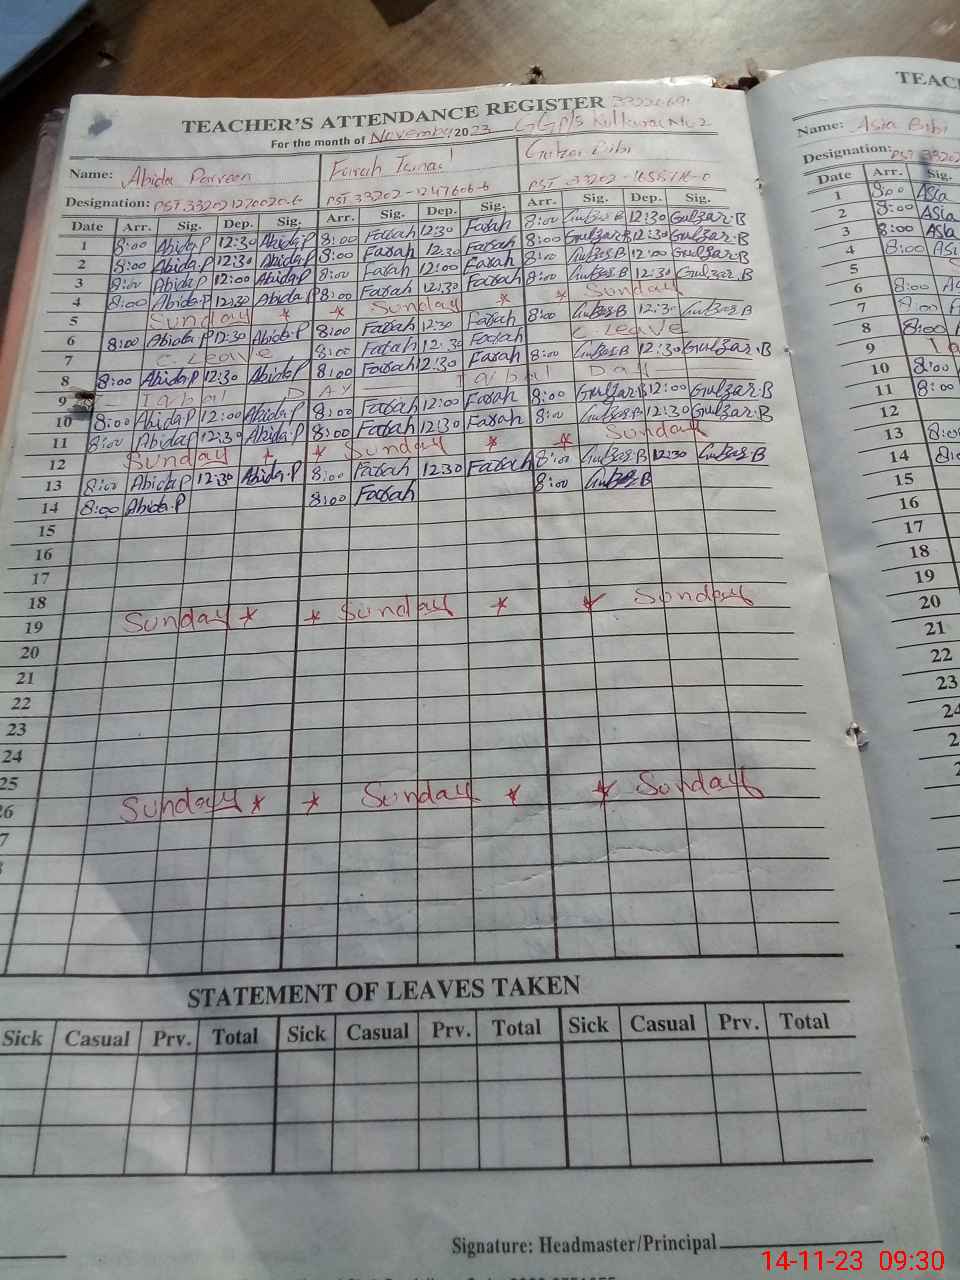 TEACHER'S ATTENDANCE REGISTER
For the month of November 2023 GGP/S
Name: Abida Parveen Farah Gulzar Bibi
Designation: PST.33202 PST 33202-1247606-6 PST 33202
Date Arr. Sig. Dep. Sig. Arr. Sig. Dep. Sig. Arr. Sig. Dep. Sig.
1 8:00 Abida.P 12:30 Abida.P 8:00 Farah 12:30 Farah 8:00 Gulzar.B 12:30 Gulzar.B
2 8:00 Abida.P 12:30 Abida.P 8:00 Farah 12:30 Farah 8:00 Gulzar.B 12:30 Gulzar.B
3 8:00 Abida.P 12:00 Abida.P 8:00 Farah 12:00 Farah 8:00 Gulzar.B 12:00 Gulzar.B
4 8:00 Abida.P 12:30 Abida.P 8:00 Farah 12:30 Farah 8:00 Gulzar.B 12:30 Gulzar.B
5 Sunday * * Sunday * * Sunday
6 8:00 Abida.P 12:30 Abida.P 8:00 Farah 12:30 Farah 8:00 Gulzar.B 12:30 Gulzar.B
7 C. Leave 8:00 Farah 12:30 Farah C. Leave
8 8:00 Abida.P 12:30 Abida.P 8:00 Farah 12:30 Farah 8:00 Gulzar.B 12:30 Gulzar.B
9 Iqbal DAY Iqbal Day
10 8:00 Abida.P 12:00 Abida.P 8:00 Farah 12:00 Farah 8:00 Gulzar.B 12:00 Gulzar.B
11 8:00 Abida.P 12:30 Abida.P 8:00 Farah 12:30 Farah 8:00 Gulzar.B 12:30 Gulzar.B
12 Sunday * * Sunday * * Sunday
13 8:00 Abida.P 12:30 Abida.P 8:00 Farah 12:30 Farah 8:00 Gulzar.B 12:30 Gulzar.B
14 8:00 Abida.P 8:00 Farah 8:00 Gulzar.B
15
16
17
18
19 Sunday * * Sunday * * Sunday
20
21
22
23
24
25
26 Sunday * * Sunday * * Sunday
STATEMENT OF LEAVES TAKEN
Sick Casual Prv. Total Sick Casual Prv. Total Sick Casual Prv. Total
Signature: Headmaster/Principal
Name: Asia Bibi
Designation: PST 33202
Date Arr. Sig.
1 8:00 Asia
2 8:00 Asia
3 8:00 Asia
4 8:00
5
6 8:00
7 8:00
8 8:00
9
10 8:00
11 8:00
12
13
14
15
16
17
18
19
20
21
22
23
14-11-23 09:30